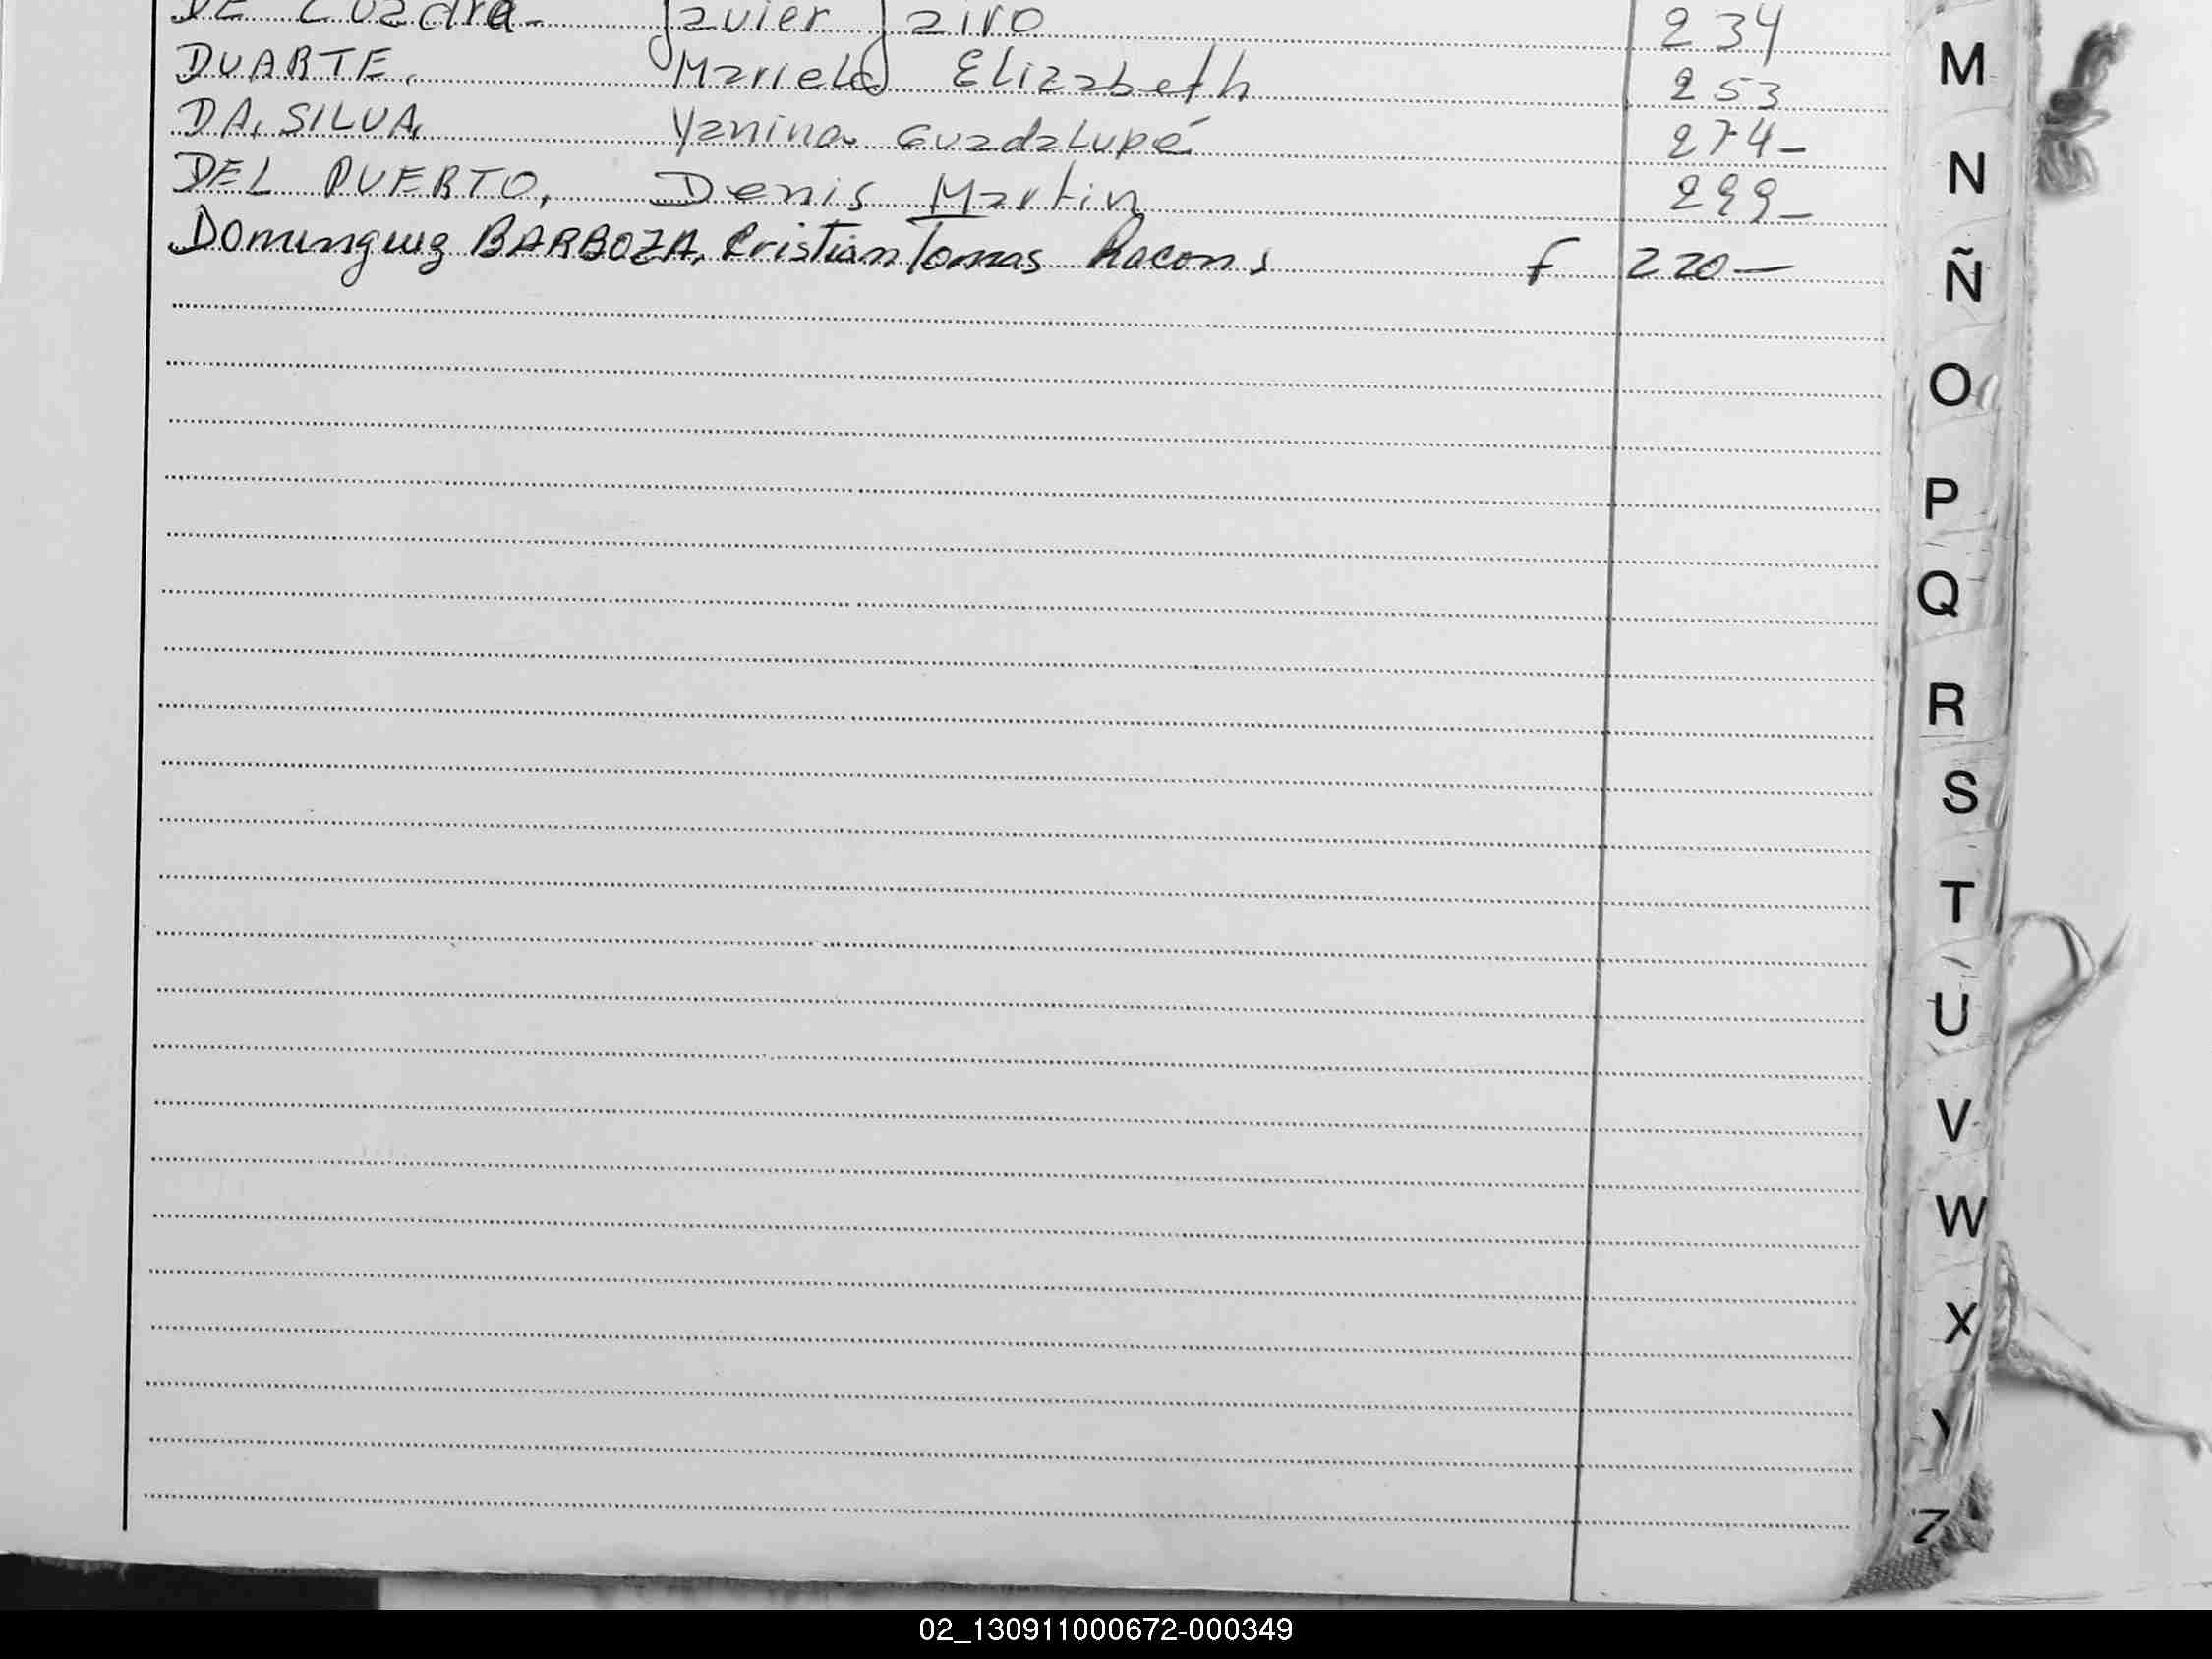 DE Cuadra- Javier Jairo 234
DUARTE, Mariela Elizabeth 253
DA, SILVA, Yanina Guadalupé 274-
DEL PUERTO, Denis Martin 299-
Dominguez BARBOZA, Cristian Tomas f 220-
M
N
Ñ
O
P
Q
R
S
T
U
V
W
X
Y
Z
02_130911000672-000349